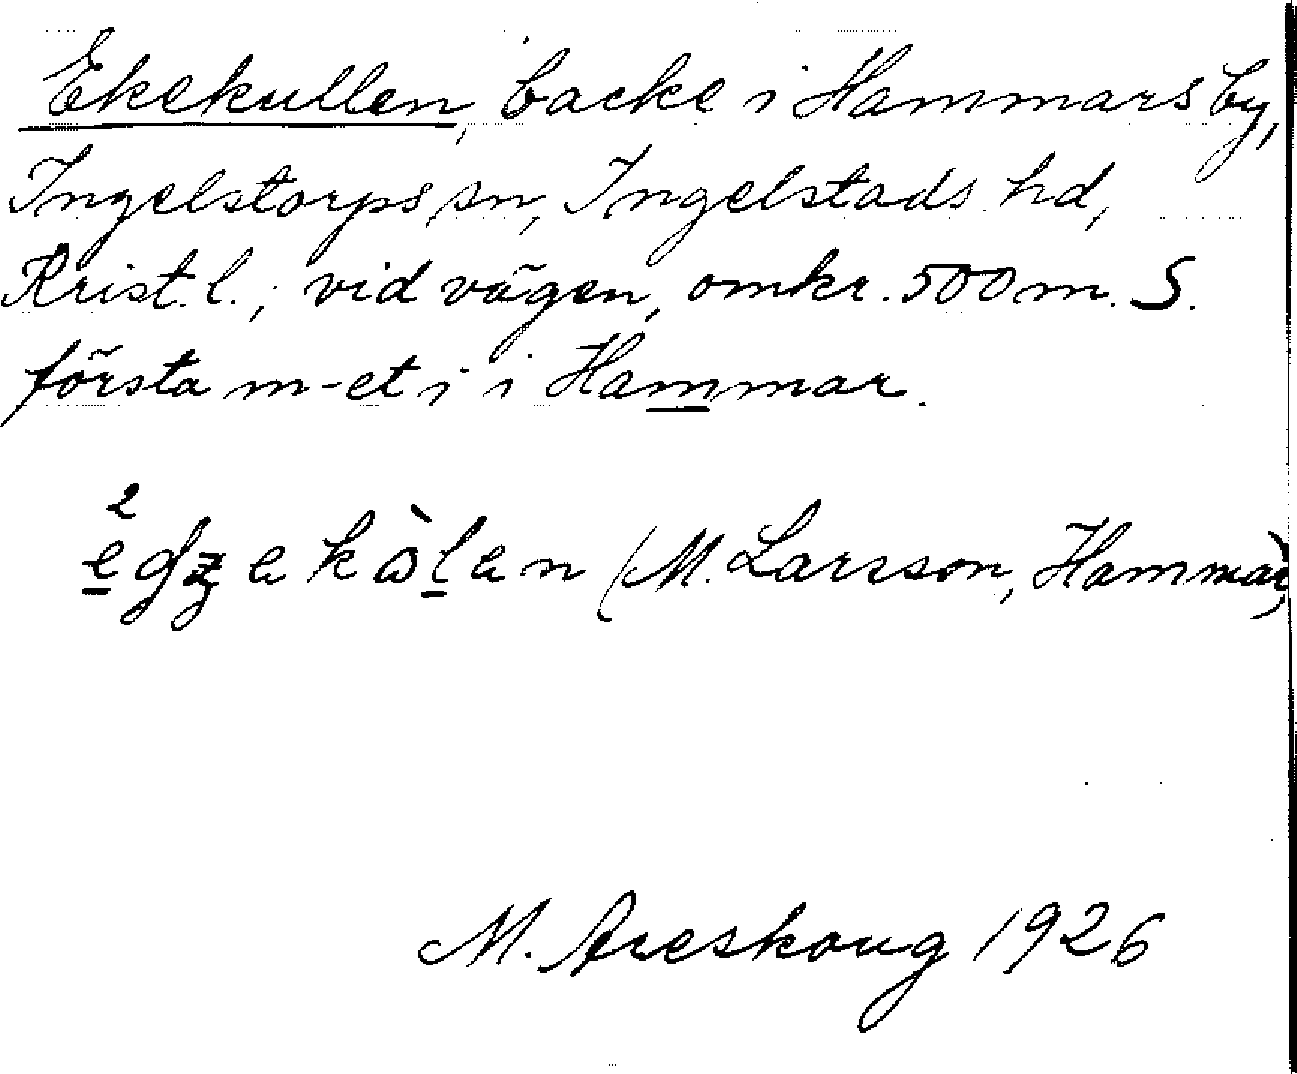 Ekekullen, backe i Hammars by,
Ingelstorps sn, Ingelstads hd,
Krist. l.; vid vägen, omkr. 500 m. S.
första m-et i i Hammar.
(M. Larsson, Hammar)
M. Areskoug 1926